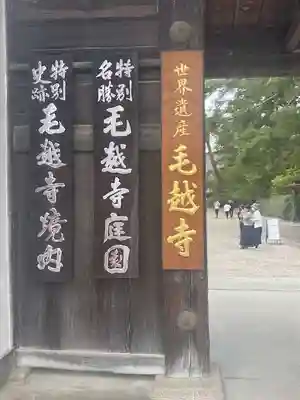 世界遺産
毛越寺
特別
名勝
毛越寺庭園
特別
史跡
毛越寺境内